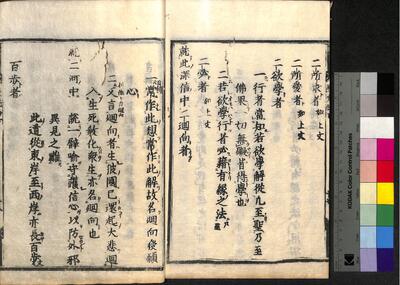 二所求者 如上文
二所愛者 如上文
二欲學者
一行者當知若欲學解從凡至聖乃至
佛果一切無礙皆得學也
二若欲學行者必藉有縁之法
二必者 如上文
就此深信中二迴向者
一常作此想常作此解故名迴向發願
心
二又言迴向者生彼國已還起大悲迴
入生死教化衆生亦名迴向也
就二河中 就一譬喩守護信心以防外邪
異見之難
此道從東岸至西岸亦長百歩
百歩者
KODAK Color Control Patches